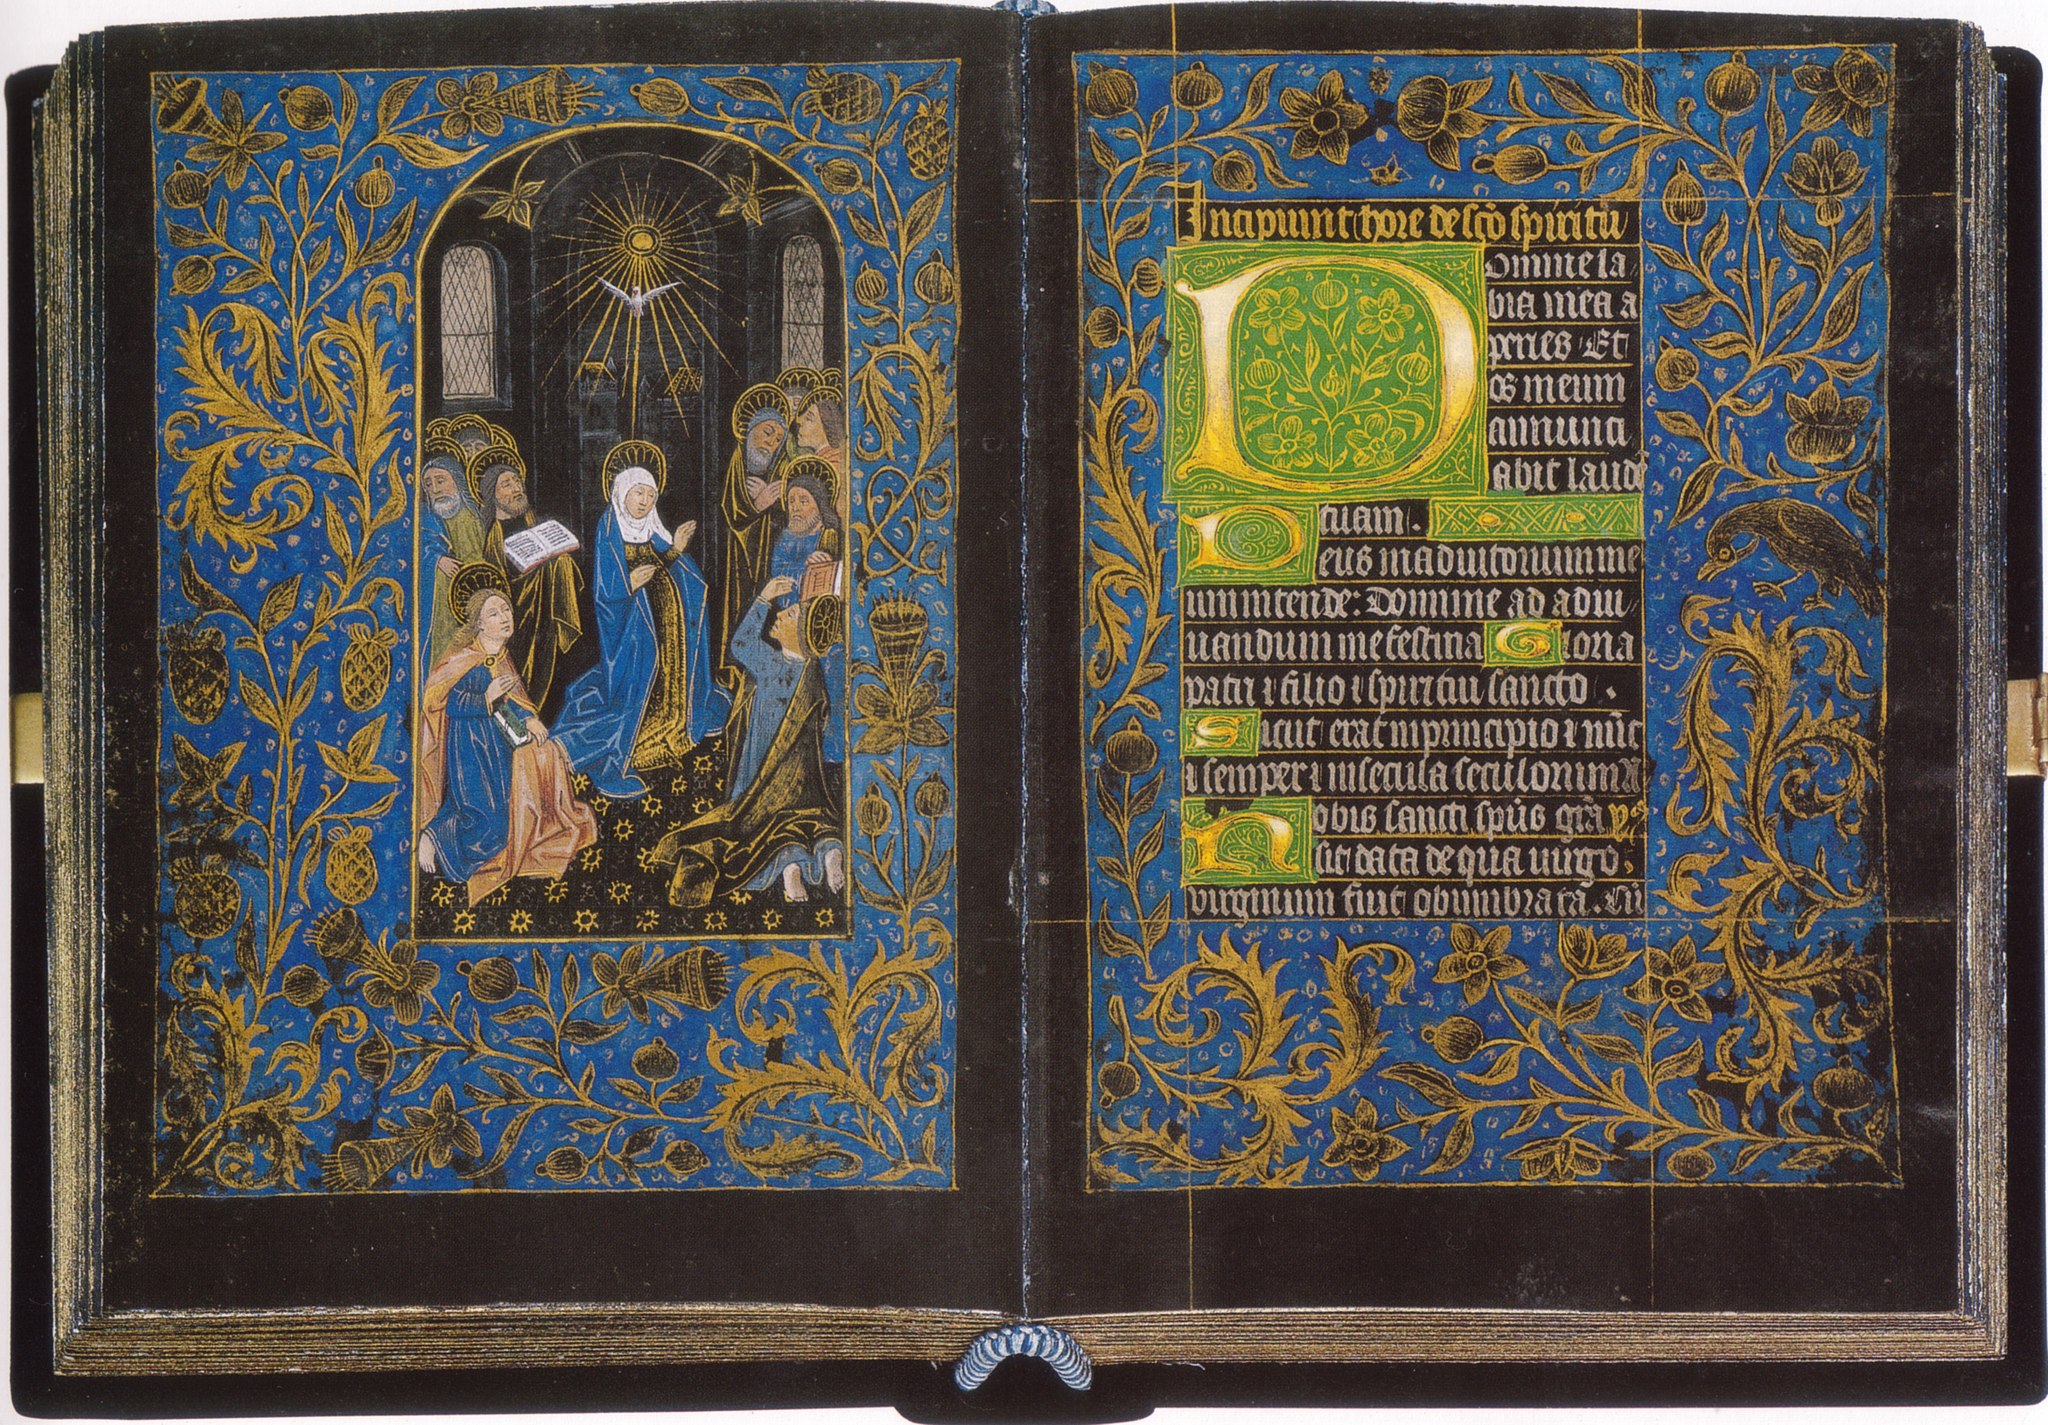 Incipiunt hore de sco spiritu
Domine la
bia mea a
peries Et
os meum
annunti
abit laude
tuam .
Deus in adiutorium me
um intende: Domine ad adiu
uandum me festina Gloria
patri ⁊ filio ⁊ spiritui sancto .
Sicut erat in principio ⁊ nūc
⁊ semper ⁊ in secula seculorum A
Nobis sancti sp̄us grā ys
sit data de qua uirgo
uirginum fuit obumbrata. Cū